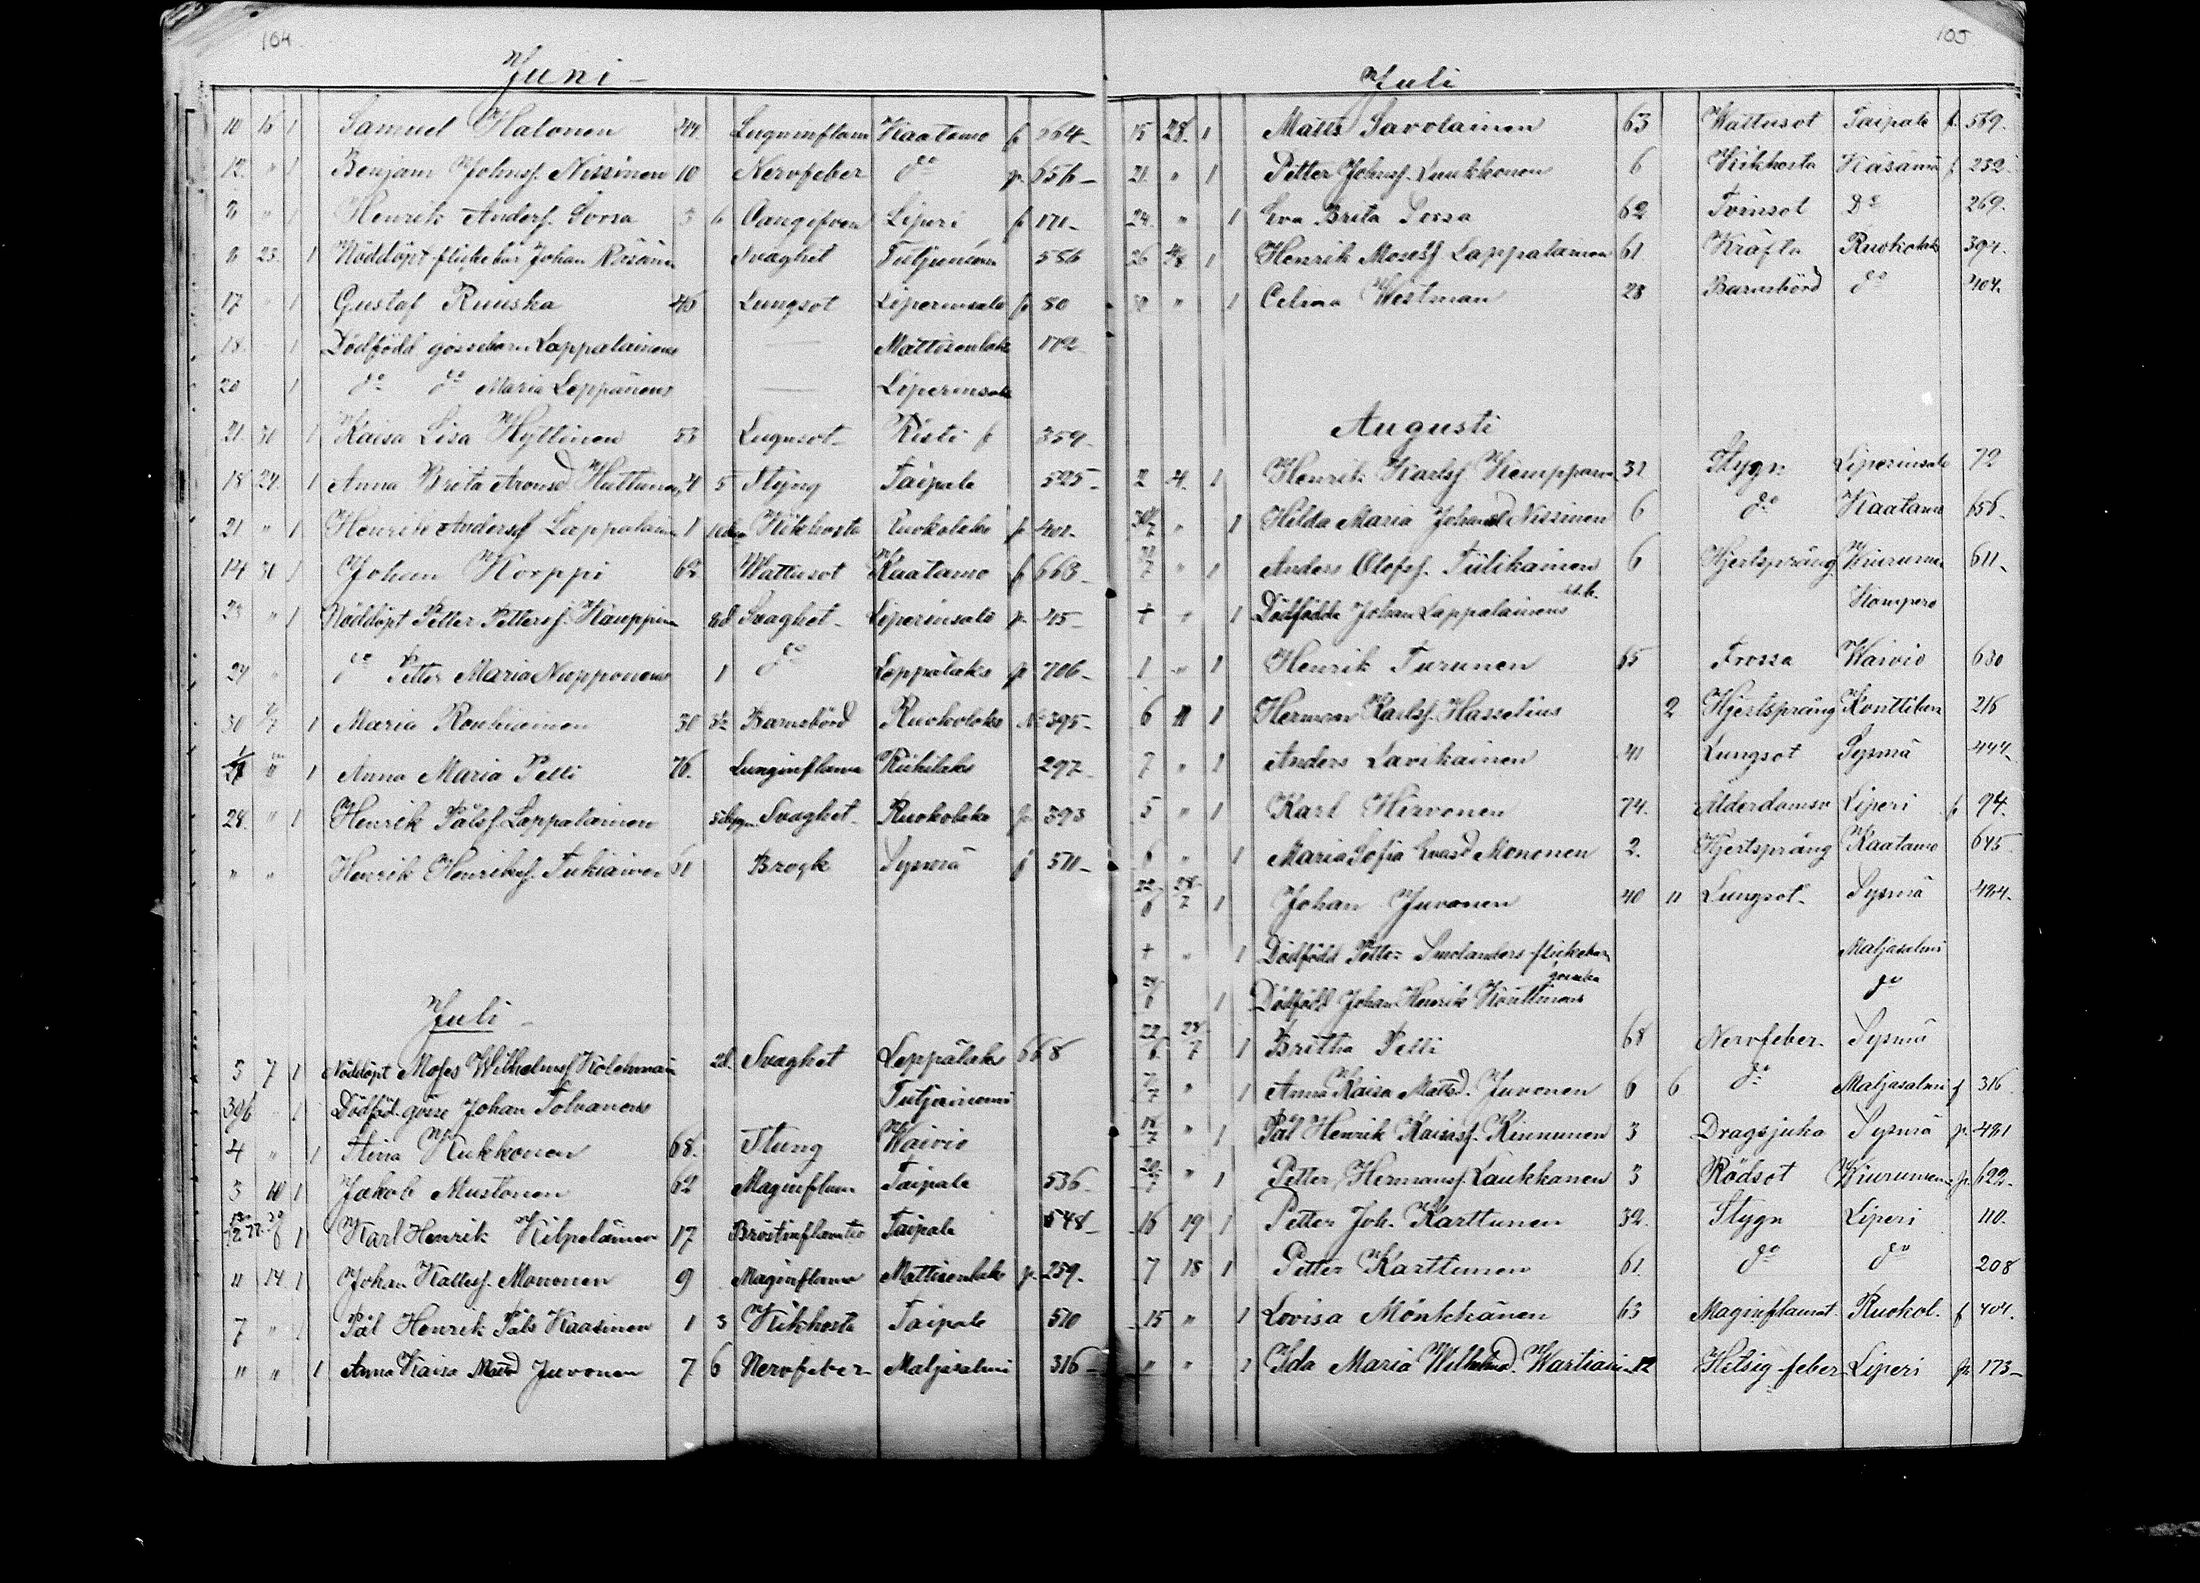 104
Juni
10 16 1 Samuel Halonen 44 Lugninflam Kaatamo f 664
12 " 1 Benjam Johnsf. Nissinen 10 Nervfeber do p. 656
" 1 Henrik Andersf. Sorsa 3 6 Liperi f 171
8 23 1 Nöddöpt flickebar Johan Räsänen Svaghet Tutjuniemi 586
17 " 1 Gustaf Ruuska 45 Lungsot Liperinsalo f 80
18 1 Dödfödd gossebarn Lappalainens — Mattisenlaks 172
20 1 do do Maria Leppänens — Liperinsalo
21 31 1 Kaisa Lisa Hyttinen 53 Lugnsot Risti f 359
18 24 1 Anna Brita Aronsd. Huttunen 4 5 Styng Taipale 525
21 " 1 Henrik Andersf Lappalain 1 Kikhosta Ruokolaks f 401
14 31 1 Johan Korppi 62 Wattusot Kaatamo f 663
23 " 1 Nöddöpt Petter Pettersf. Kauppin 8d Svaghet Liperinsalo p. 45
24 " do Petter Maria Nupponens 1 do Leppälaks p 706
30 1/7 1 Maria Rouhiainen 30 Barnsbörd Ruokolaks No 395
8 1 Anna Maria Pelli 76. Lunginflama Riihilaks 297
28 " 1 Henrik Pålsf. Lappalainen Svaghet Ruokolaks p. 393
" " Henrik Henriksf. Tukiainen 61 Brogk Sysmä f 511
Juli
5 7 1 Nöddöpt Moses Wilhelmsf Kolehmain 2d. Svaghet Leppälaks 668
30/6 1 Dödföd. gosse Johan Tolvanens Tutjuniemi
4 " 1 Stina Kukkonen 68. Stung Waivio
3 10 1 Jakob Mustonen 62 Maginflam Taipale 536
1 Karl Henrik Kilpeläinen 17 Bröstinflamatio Taipale 548
11 14 1 Johan Kallesf. Mononen 9 Maginflama Mattisenlaks p. 259
7 " 1 Pål Henrik Påls Kaasinen 1 3 Kikhosta Taipale 510
" " 1 Anna Kaisa Matsd Juvonen 7 6 Nervfeber Maljasalmi 316
105
Juli
15 28 1 Matts Savolainen 63 Wattusot Taipale f. 569
21 " 1 Petter Johnsf. Luukkonen 6 Kikhosta Käsämä f 252
24 " 1 Eva Brita Sorsa 62 Tvinsot Do 269
26 1 Henrik Mosesf Lappalainen 61 Kräfta Ruokolaks 394
30 " 1 Celina Westman 28 Barnsbörd do 404
Augusti
2 4 1 Henrik Karlsf Kemppain 31 Stygn Liperinsalo 72
30/7 " 1 Hilda Maria Johansd Nissinen 6 do Kaatamo 656
31/7 " 1 Anders Olofsf. Tiilikainen 6 Hjertsprång Wiurunie 611
+ " 1 Dödfödde Johan Lappalainens Kompero
1 " 1 Henrik Turunen 65 Frossa Waivio 630
6 11 1 Herman Karlsf. Hasselius 2 Hjertsprång Konttiken 216
7 " 1 Anders Lavikainen 41 Lungsot Sysmä 444
5 " 1 Karl Hirvonen 74. Ålderdomsv Liperi f 94
6 " 1 Maria Sofia Evasd Mononen 2. Hjertsprång Kaatamo 645
22/6 28/7 1 Johan Juvonen 40 11 Lungsot Sysmä 484
+ " 1 Dödfödd Petter Smolanders flickebar Maljasalmi
24/6 1 Dödfödd Johan Henrik Konttinens gosseba do
22/6 28/7 1 Britha Pelli 68 Nervfeber Sysmä
7/7 " 1 Anna Kaisa Matsd. Juvonen 6 6 do Maljasalmi f 316
18/7 " 1 Pål Henrik Kaisasf. Kinnunen 3 Dragsjuka Sysmä p. 481
20/7 " 1 Petter Hermansf. Laukkanen 3 Rödsot Wiurunem p. 622
16 19 1 Petter Joh. Karttunen 32. Stygn Liperi 110
7 18 1 Petter Karttunen 61. do do 208
15 " 1 Lovisa Mönkkänen 63 Maginflamat. Ruokol. f 404
" " 1 Ida Maria Wilhelmsd. Wartiain 12 Hetsig feber Liperi p 173